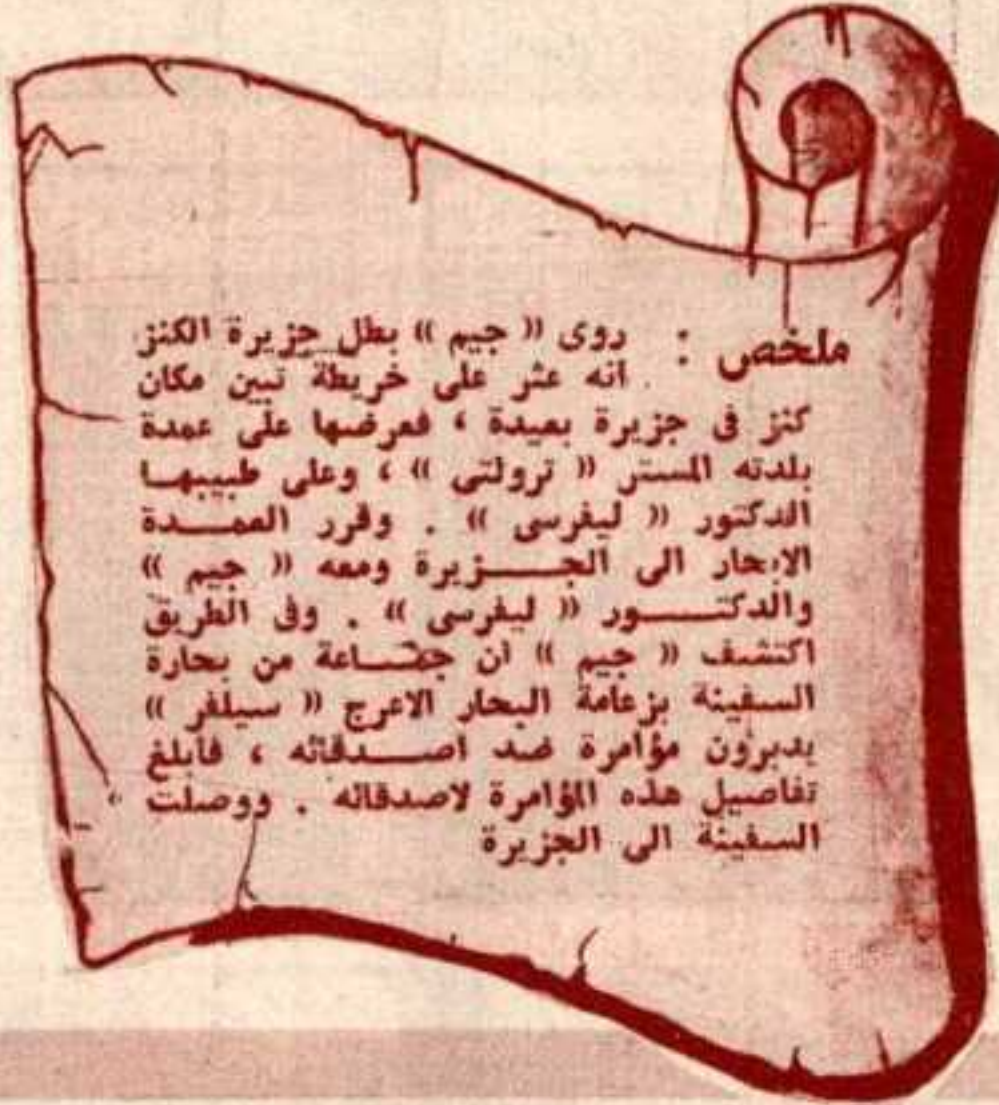 ملخص : روى (( جيم )) بطل جزيرة الكنز
انه عثر على خريطة تبين مكان
كنز فى جزيرة بعيدة ، فعرضها على عمدة
بلدته المستر (( ترولتى )) ، وعلى طبيبها
الدكتور (( ليفرسى )) . وقرر العمدة
الابحار الى الجزيرة ومعه (( جيم ))
والدكتور (( ليفرسى )) . وفى الطريق
اكتشف (( جيم )) ان جماعة من بحارة
السفينة بزعامة البحار الاعرج (( سيلفر ))
يدبرون مؤامرة ضد اصدقائه ، فأبلغ
تفاصيل هذه المؤامرة لاصدقائه . ووصلت
السفينة الى الجزيرة